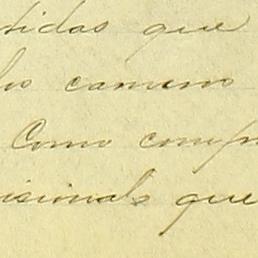 didas que
camino
Como comp
visionals que